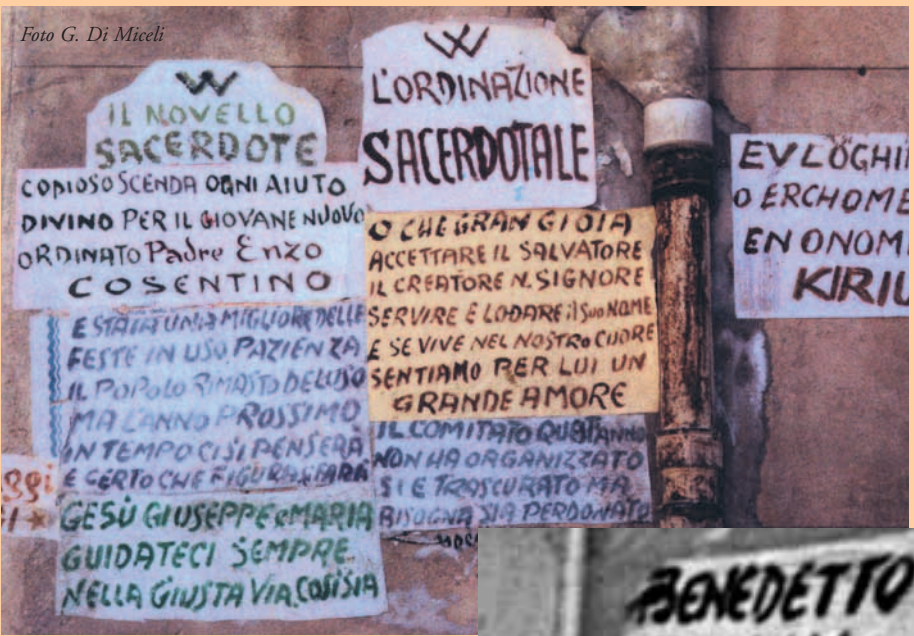 Foto G. Di Miceli
W
IL NOVELLO
SACERDOTE
COPIOSO SCENDA OGNI AIUTO
DIVINO PER IL GIOVANE NUOVO
ORDINATO Padre Enzo
COSENTINO
E STATA UNA MIGLIORE DELLE
FESTE IN USO PAZIENZA
IL POPOLO RIMASTO DELUSO
MA L'ANNO PROSSIMO
IN TEMPO CI SI PENSERÀ
E CERTO CHE FIGURA SI FARÀ
GESÙ GIUSEPPE e MARIA
GUIDATECI SEMPRE
NELLA GIUSTA VIA COSÌ SIA
W
L'ORDINAZIONE
SACERDOTALE
O CHE GRAN GIOIA
ACCETTARE IL SALVATORE
IL CREATORE N. SIGNORE
SERVIRE E LODARE il SUO NOME
E SE VIVE NEL NOSTRO CUORE
SENTIAMO PER LUI UN
GRANDE AMORE
IL COMITATO QUEST'ANNO
NON HA ORGANIZZATO
SI E TRASCURATO MA
BISOGNA SIA PERDONATO
EVLÒGHI
O ERCHOME
EN ONOM
KIRIU
BENEDETTO